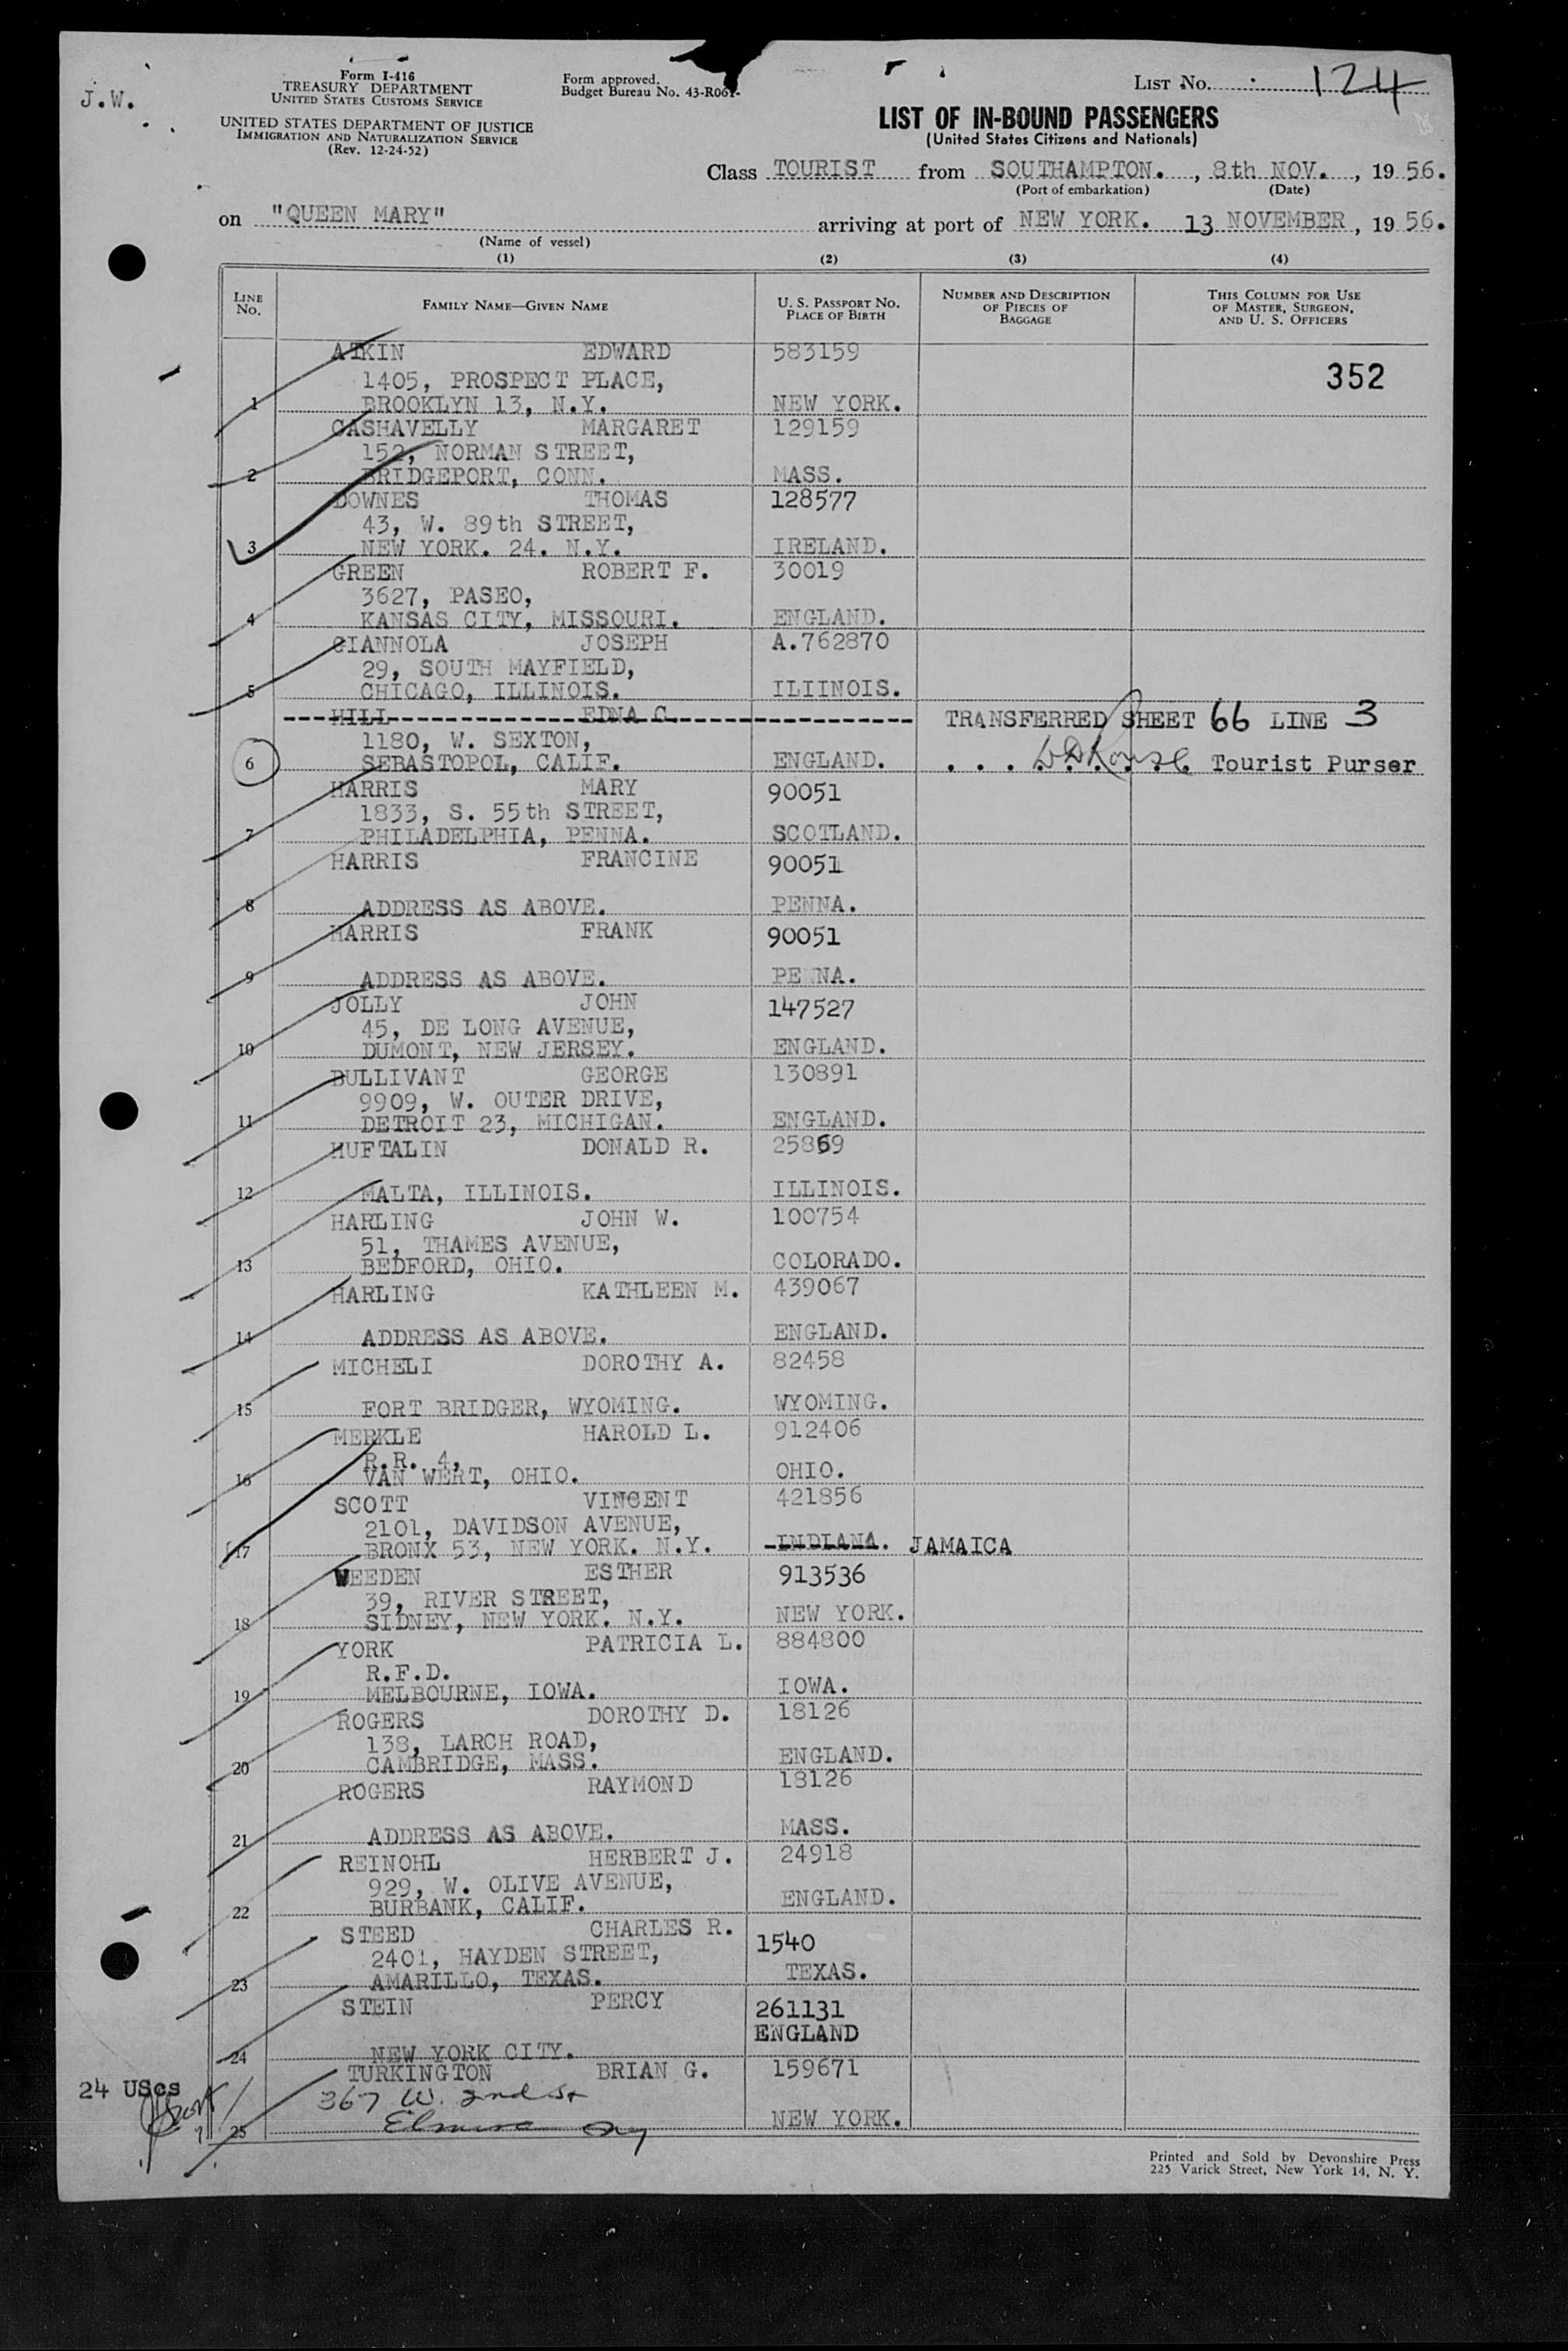 J.W.
Form I-416
TREASURY DEPARTMENT
UNITED STATES CUSTOMS SERVICE
UNITED STATES DEPARTMENT OF JUSTICE
IMMIGRATION AND NATURALIZATION SERVICE
(Rev. 12-24-52)
Form approved.
Budget Bureau No. 43-R061-
LIST NO. 124
LIST OF IN-BOUND PASSENGERS
(United States Citizens and Nationals)
Class TOURIST from SOUTHAMPTON. , 8th NOV. , 19 56.
(Port of embarkation) (Date)
on "QUEEN MARY" arriving at port of NEW YORK. 13 NOVEMBER , 19 56.
(Name of vessel)
(1) (2) (3) (4)
LINE NO. FAMILY NAME—GIVEN NAME U. S. PASSPORT NO. PLACE OF BIRTH NUMBER AND DESCRIPTION OF PIECES OF BAGGAGE THIS COLUMN FOR USE OF MASTER, SURGEON, AND U. S. OFFICERS
ATKIN EDWARD 583159
1405, PROSPECT PLACE, 352
1 BROOKLYN 13, N.Y. NEW YORK.
CASHAVELLY MARGARET 129159
152, NORMAN STREET,
2 BRIDGEPORT, CONN. MASS.
DOWNES THOMAS 128577
43, W. 89th STREET,
3 NEW YORK. 24. N.Y. IRELAND.
GREEN ROBERT F. 30019
3627, PASEO,
4 KANSAS CITY, MISSOURI. ENGLAND.
GIANNOLA JOSEPH A.762870
29, SOUTH MAYFIELD,
5 CHICAGO, ILLINOIS. ILIINOIS.
HILL EDNA C. TRANSFERRED SHEET 66 LINE 3
1180, W. SEXTON,
6 SEBASTOPOL, CALIF. ENGLAND. Tourist Purser
HARRIS MARY 90051
1833, S. 55th STREET,
7 PHILADELPHIA, PENNA. SCOTLAND.
HARRIS FRANCINE 90051
8 ADDRESS AS ABOVE. PENNA.
HARRIS FRANK 90051
9 ADDRESS AS ABOVE. PENNA.
JOLLY JOHN 147527
45, DE LONG AVENUE,
10 DUMONT, NEW JERSEY. ENGLAND.
BULLIVANT GEORGE 130891
9909, W. OUTER DRIVE,
11 DETROIT 23, MICHIGAN. ENGLAND.
HUFTALIN DONALD R. 25869
12 MALTA, ILLINOIS. ILLINOIS.
HARLING JOHN W. 100754
51, THAMES AVENUE,
13 BEDFORD, OHIO. COLORADO.
HARLING KATHLEEN M. 439067
14 ADDRESS AS ABOVE. ENGLAND.
MICHELI DOROTHY A. 82458
15 FORT BRIDGER, WYOMING. WYOMING.
MERKLE HAROLD L. 912406
R.R. 4,
16 VAN WERT, OHIO. OHIO.
SCOTT VINCENT 421856
2101, DAVIDSON AVENUE,
17 BRONX 53, NEW YORK. N.Y. INDIANA. JAMAICA
WEEDEN ESTHER 913536
39, RIVER STREET,
18 SIDNEY, NEW YORK. N.Y. NEW YORK.
YORK PATRICIA L. 884800
R.F.D.
19 MELBOURNE, IOWA. IOWA.
ROGERS DOROTHY D. 18126
138, LARCH ROAD,
20 CAMBRIDGE, MASS. ENGLAND.
ROGERS RAYMOND 18126
21 ADDRESS AS ABOVE. MASS.
REINOHL HERBERT J. 24918
929, W. OLIVE AVENUE,
22 BURBANK, CALIF. ENGLAND.
STEED CHARLES R. 1540
2401, HAYDEN STREET,
23 AMARILLO, TEXAS. TEXAS.
STEIN PERCY 261131
ENGLAND
24 NEW YORK CITY.
TURKINGTON BRIAN G. 159671
24 USCS 367 W. 2nd St
25 Elmira NY NEW YORK.
Printed and Sold by Devonshire Press
225 Varick Street, New York 14, N. Y.